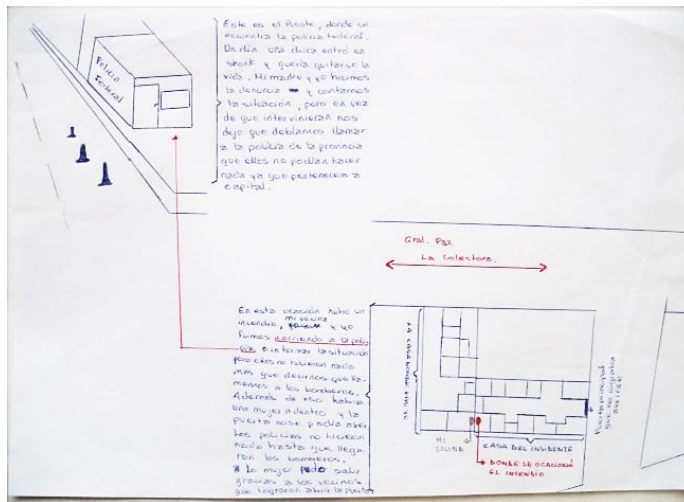 Policía
Federal
Este es el Puente, donde se
encuentra la policía Federal.
Un día una chica entró en
shock y quería quitarse la
vida. Mi madre y yo hicimos
la denuncia y contamos
la situación, pero en vez
de que intervinieran nos
dijo que debíamos llamar
a la policía de la provincia
que ellos no podían hacer
nada ya que pertenecen a
capital.
Gral. Paz
La Colectora.
En esta ocación hubo un
incendio, mi vecina y yo
fuimos corriendo a la poli-
cia a informar la situación
pero ellos no hicieron nada
más que decirnos que lla-
memos a los bomberos.
Además de eso había
una mujer adentro y la
puerta no se podía abrir
Los policías no hicieron
nada hasta que llega-
ron los bomberos.
La mujer pudo salir
gracias a los vecinos
que lograron abrir la puerta
Puerta principal
que no lograba
abrirse
MI
COCINA
CASA DEL INSIDENTE
DONDE SE OCACIONÓ
EL INCENDIO